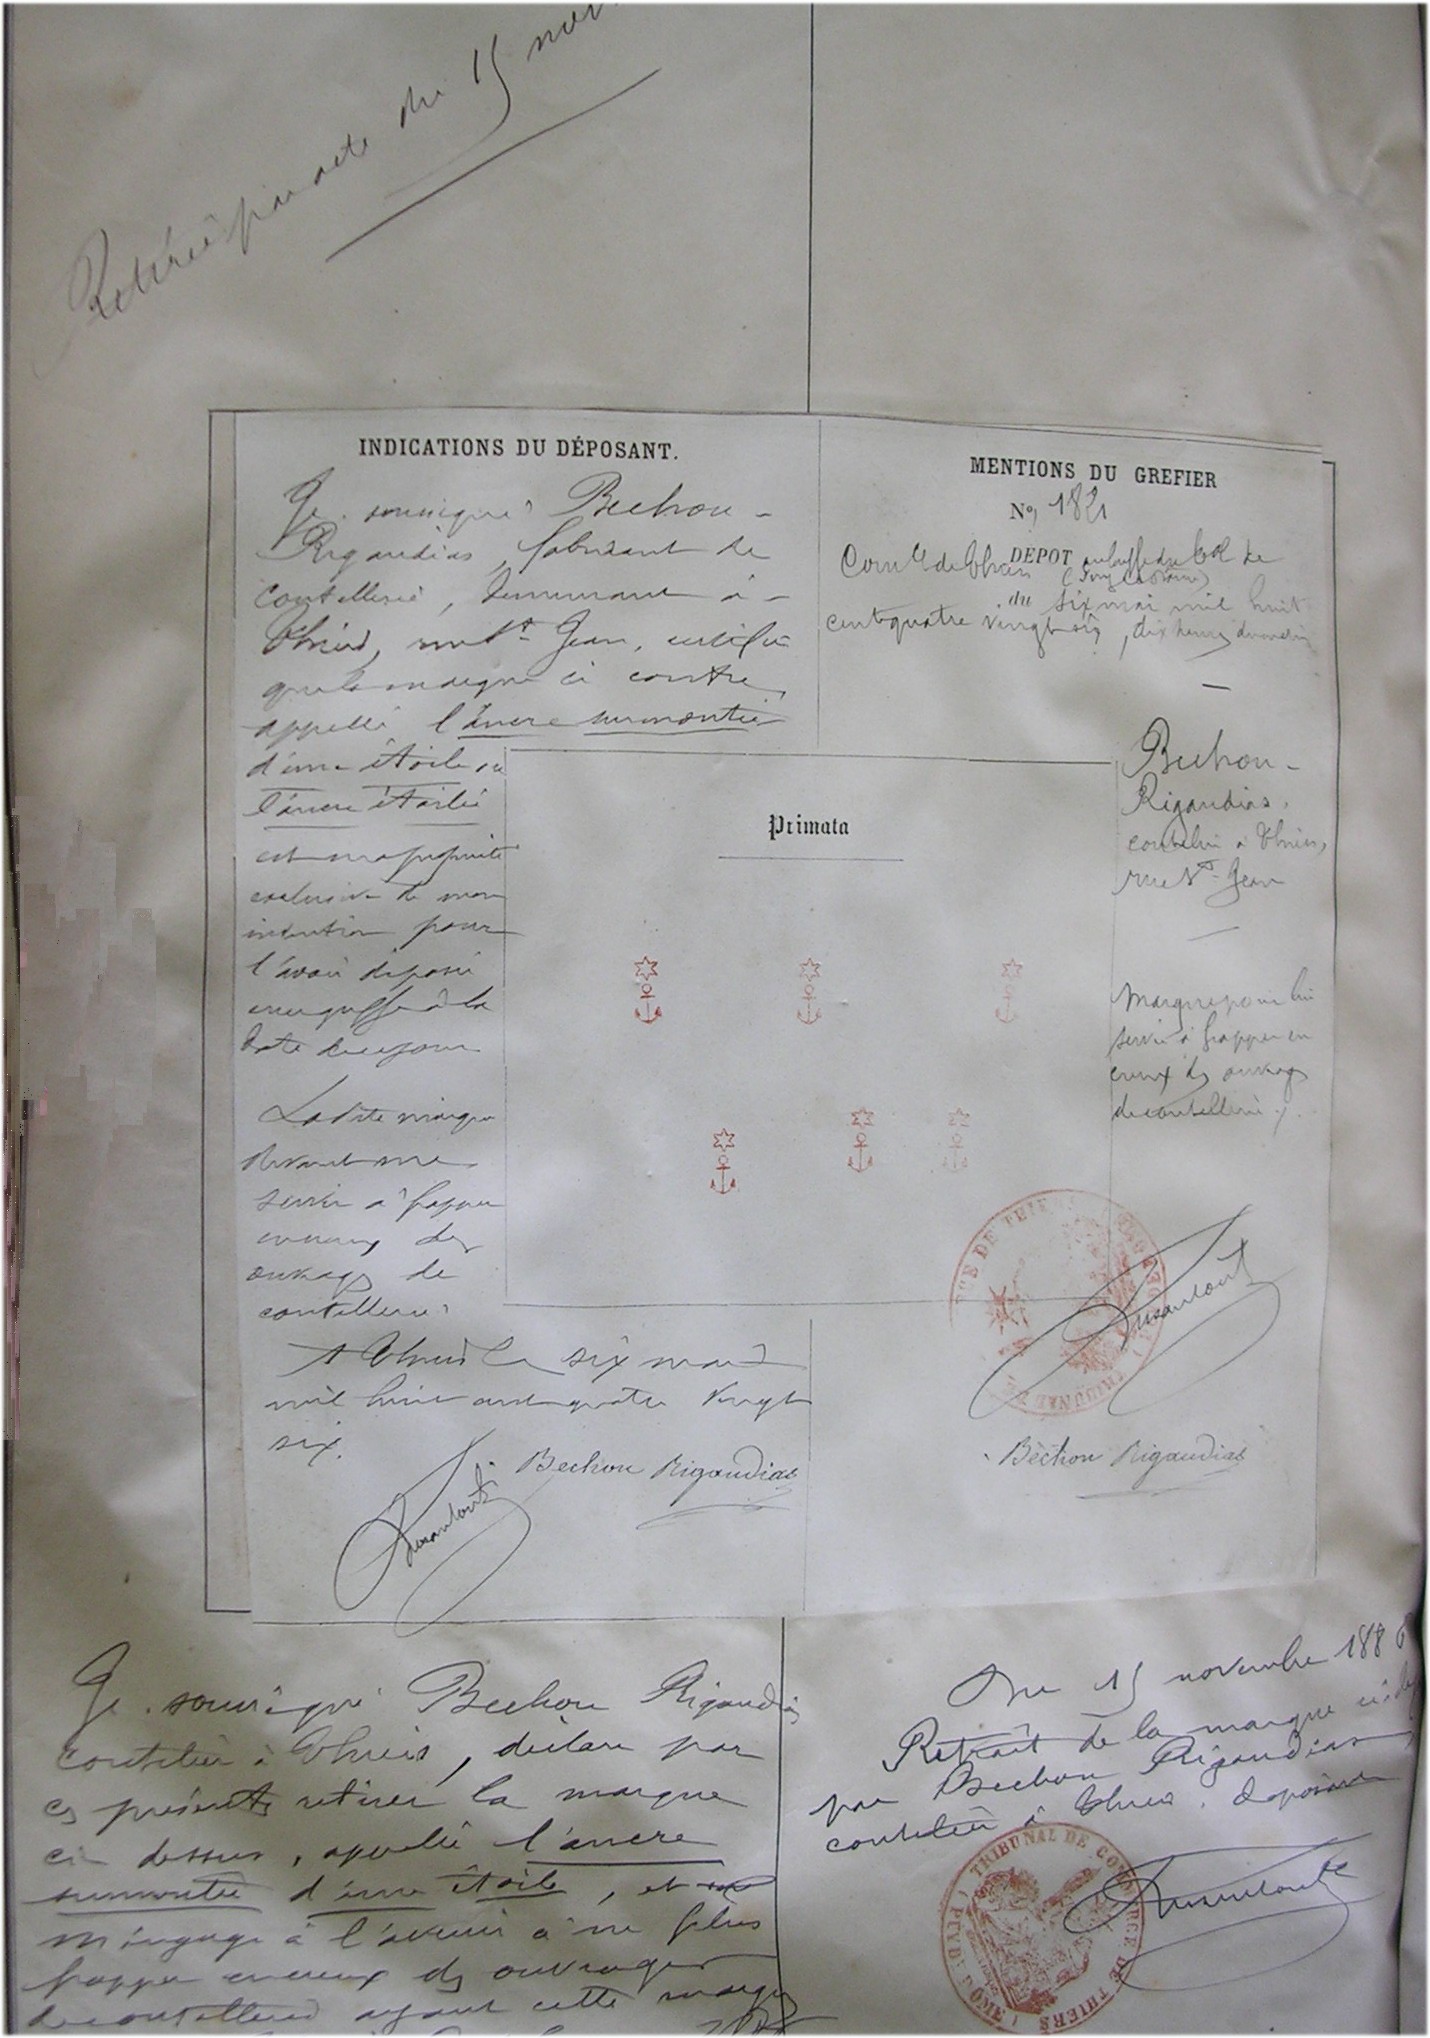 Retirée par acte du 15 nov.
INDICATIONS DU DÉPOSANT.
Je soussigné Bechon-
Rigaudias, fabricant de
coutellerie, demeurant à
Thiers, rue St Jean, certifie
que la marque ci contre,
appellée l'ancre surmontée
d'une étoile ou
l'ancre étoilée
est ma propriété
exclusive
intention pour
l'avoir déposée
au greffe à la
date de ce jour
La dite marque
devant me
servir à frapper
en creux des
ouvrages de
coutellerie.
A Thiers le six mai
mil huit cent quatre vingt
six.
Bechon Rigaudias
MENTIONS DU GREFIER
No, 182
DEPOT au greffe du
Comce de Thiers
(Puy de Dôme)
du six mai mil huit
cent quatre vingt six, dix heures du matin
—
Primata
Bechon-
Rigaudias,
coutelier à Thiers,
rue St-Jean
—
Marque pour lui
servir à frapper en
creux des ouvrages
de coutellerie.
Bechon Rigaudias
Je soussigné Bechon Rigaudias
coutelier à Thiers, déclare par
ces présentes retirer la marque
ci dessus, appellée l'ancre
surmontée d'une étoile, et
m'engage à l'avenir à ne plus
frapper en creux des ouvrages
de coutellerie ayant cette marque
Du 15 novembre 1886
Retrait de la marque
par Bechon Rigaudias
coutelier à Thiers, déposant
TRIBUNAL DE COMMERCE DE THIERS (PUY-DE-DOME)